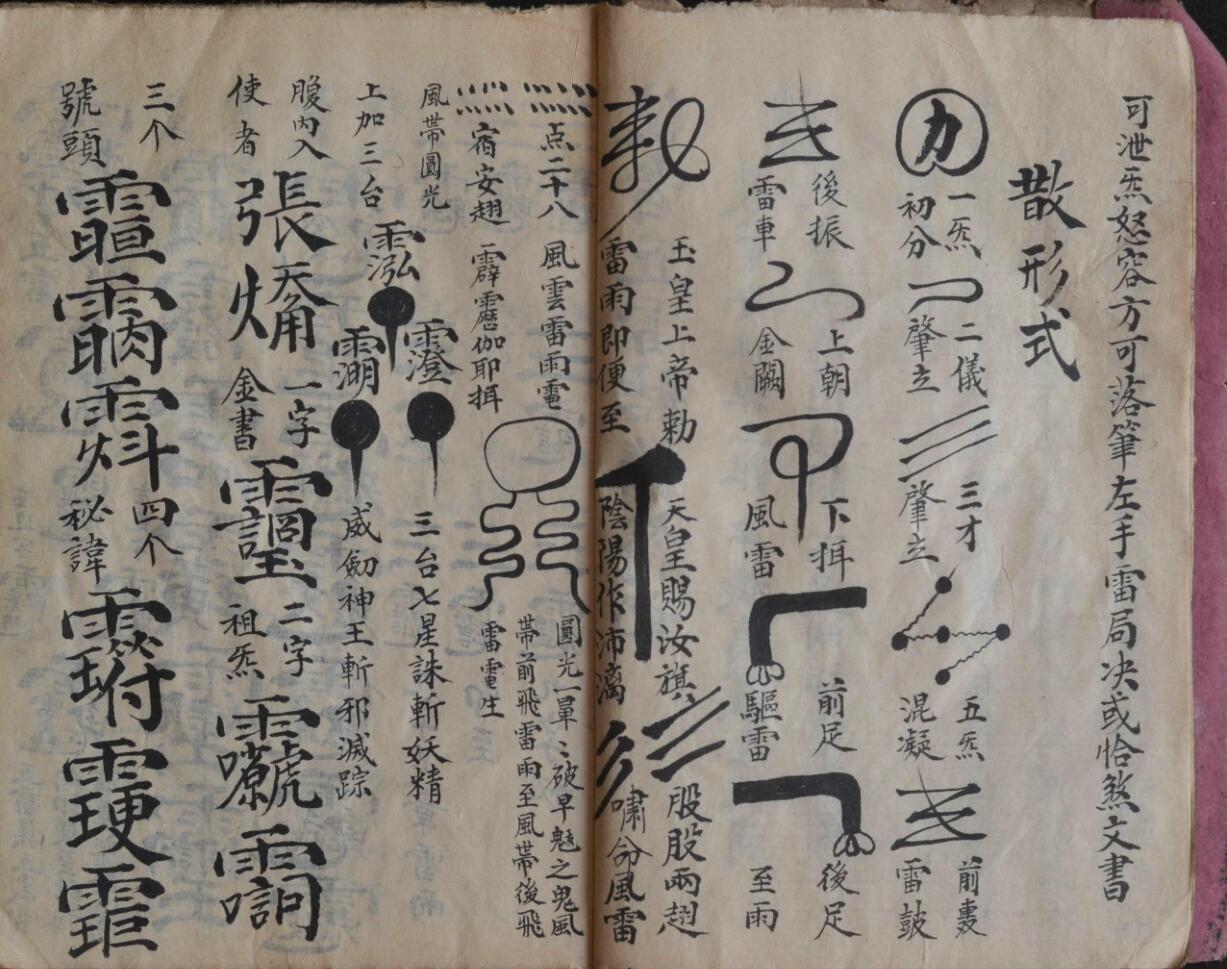 可泄炁怒容方可落筆左手雷局决或恰煞文書
散形式
一炁初分
二儀肇立
三才肇立
五炁混凝
前轟雷鼓
後振雷車
上朝金闕
下揖風雷
前足驅雷
後足至雨
玉皇上帝勅
雷雨即便至
天皇賜汝旗
陰陽作沛漓
股股兩趐
嘯命風雷
点二十八宿安趐
風雲雷雨電
霹靂伽耶揖
圓光一暈〻破旱魃之鬼風
帶前飛雷雨至風帶後飛
雷電生
風帶圓光
上加三台
三台七星誅斬妖精
威劍神王斬邪滅踪
腹内入
使者
張
一字
金書
二字
祖炁
三个
號頭
四个
秘諱